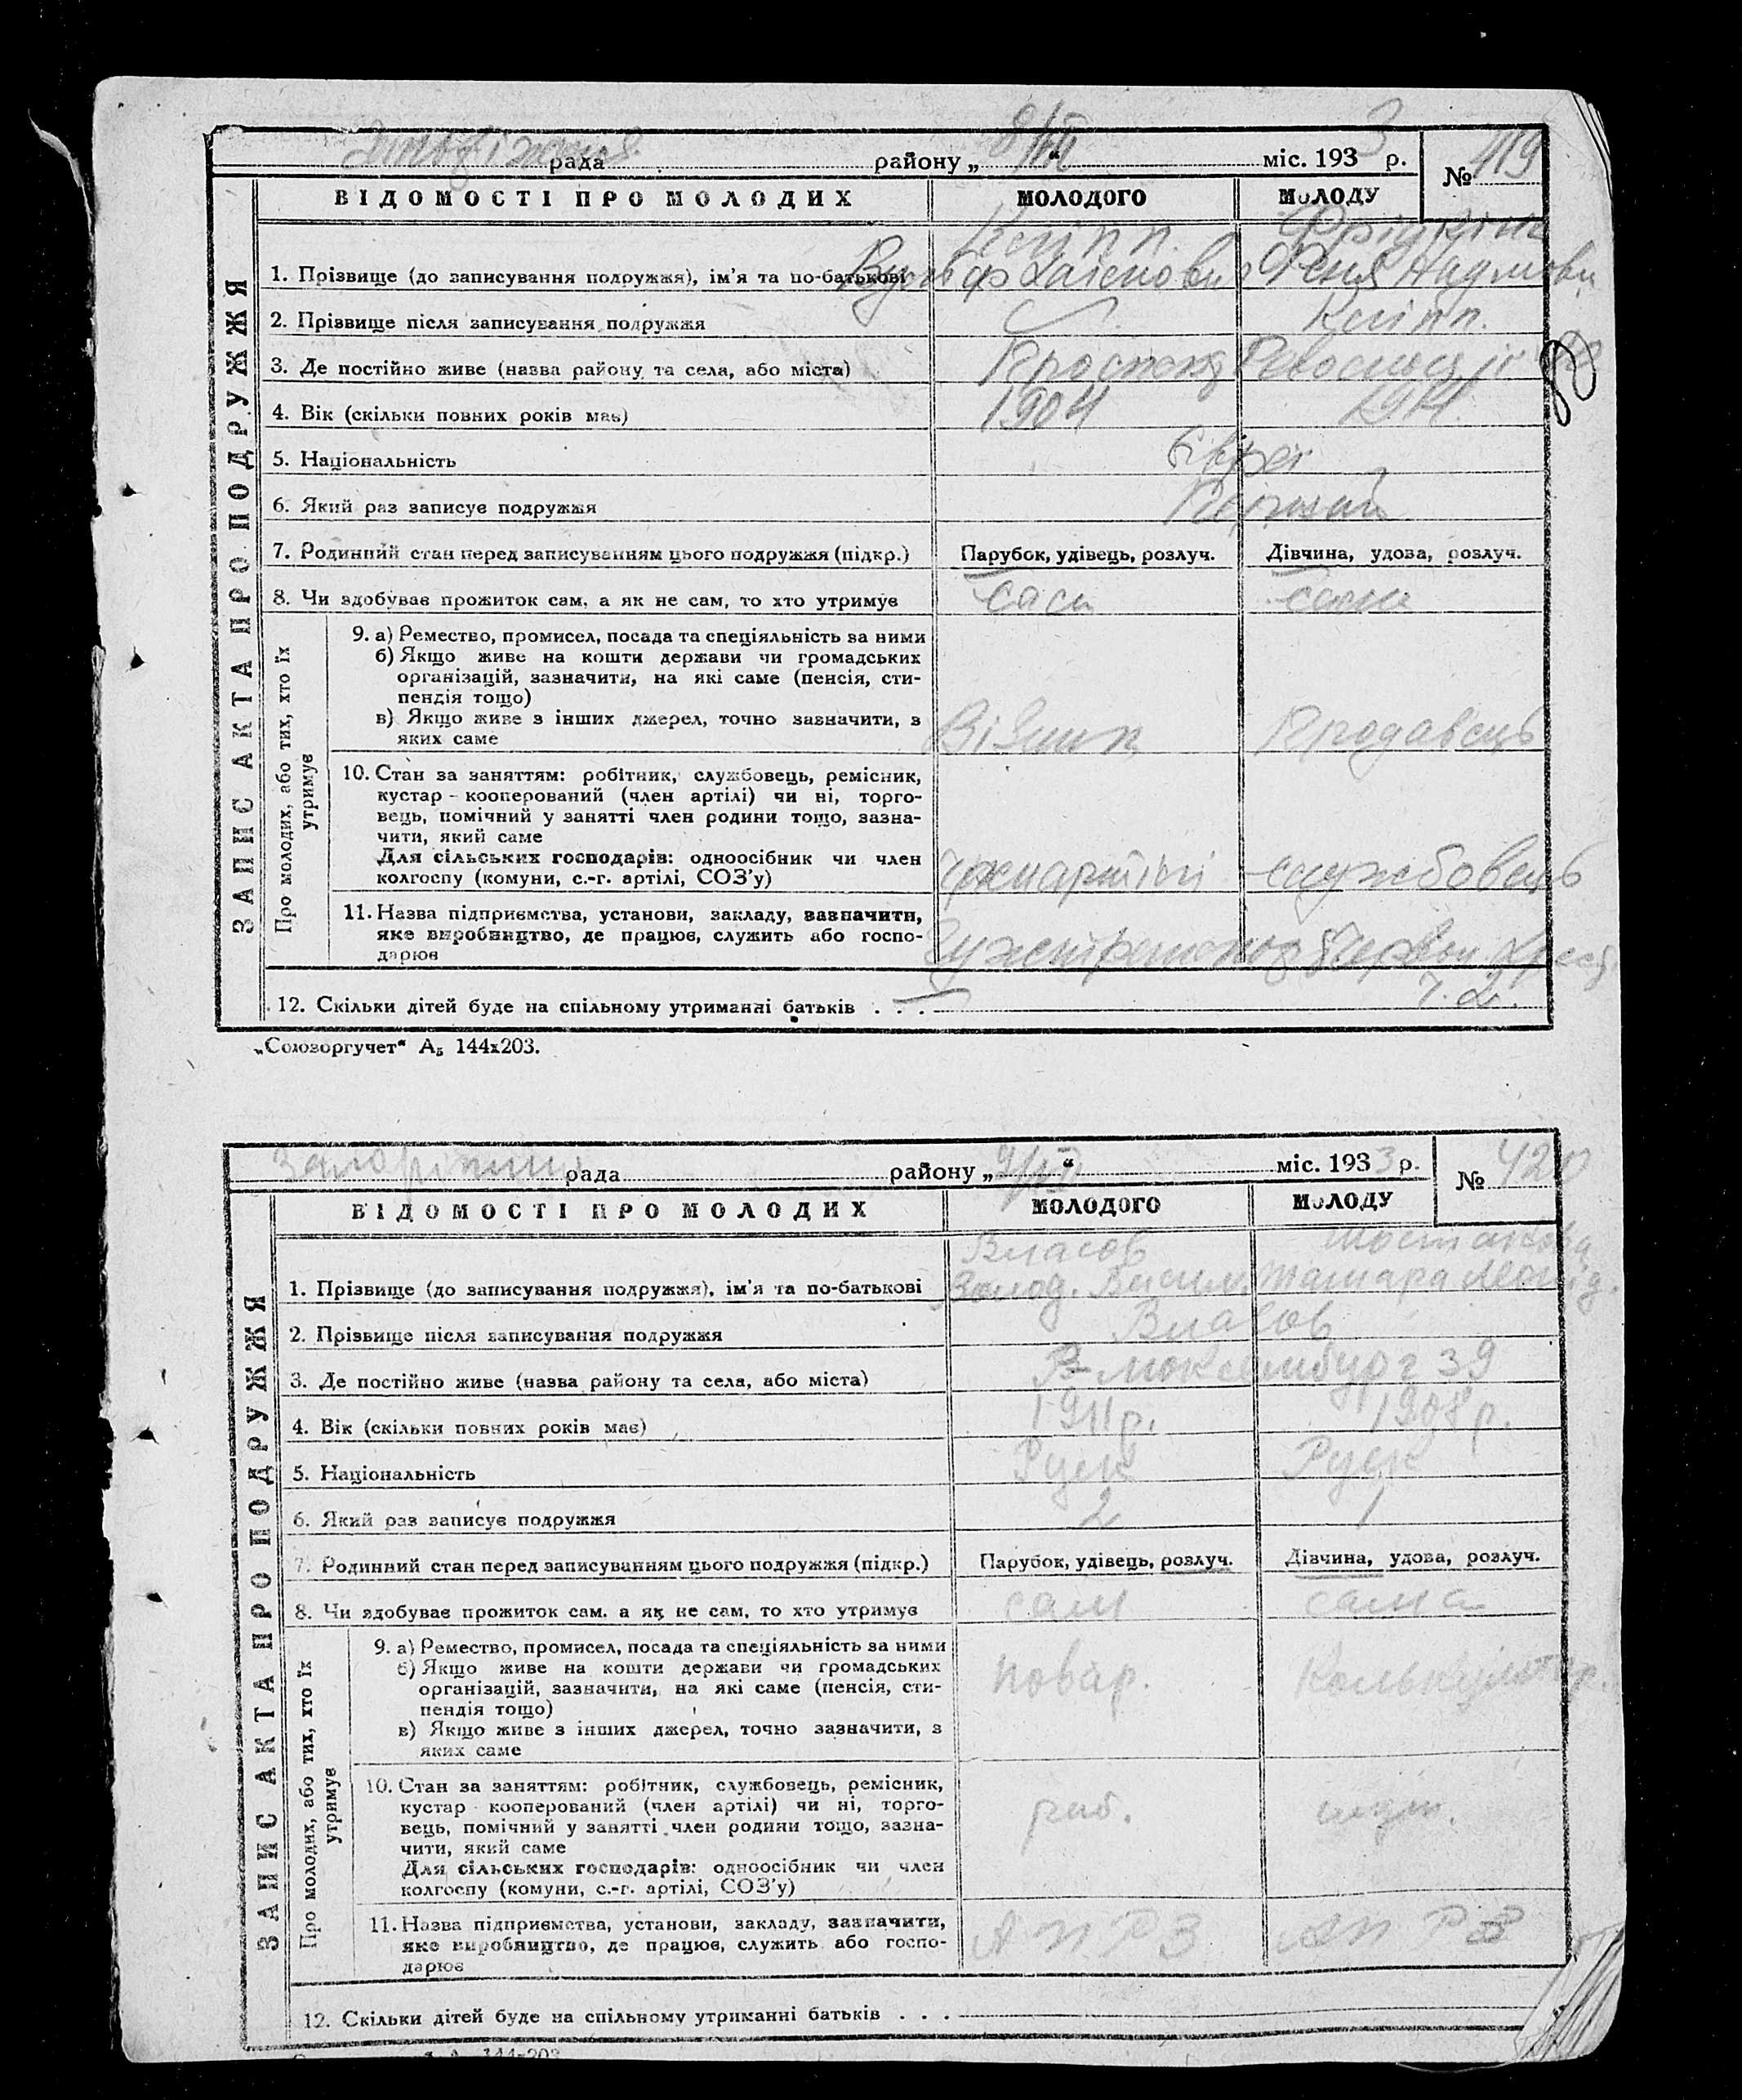 рада району „8/VI“ міс. 1933 р. № 419
ВІДОМОСТІ ПРО МОЛОДИХ МОЛОДОГО МОЛОДУ
ЗАПИС АКТА ПРО ПОДРУЖЖЯ
1. Прізвище (до записування подружжя), ім'я та по-батькові
2. Прізвище після записування подружжя
3. Де постійно живе (назва району та села, або міста)
4. Вік (скільки повних років має) 1904
5. Національність Євреї
6. Який раз записує подружжя Перший
7. Родинний стан перед записуванням цього подружжя (підкр.) Парубок, удівець, розлуч. Дівчина, удова, розлуч.
8. Чи здобуває прожиток сам, а як не сам, то хто утримує сам сама
Про молодих, або тих, хто їх утримує
9. а) Ремество, промисел, посада та спеціяльність за ними
б) Якщо живе на кошти держави чи громадських
організацій, зазначити, на які саме (пенсія, сти-
пендія тощо)
в) Якщо живе з інших джерел, точно зазначити, з
яких саме Візник Продавець
10. Стан за заняттям: робітник, службовець, ремісник,
кустар - кооперований (член артілі) чи ні, торго-
вець, помічний у занятті член родини тощо, зазна-
чити, який саме
Для сільських господарів: одноосібник чи член
колгоспу (комуни, с.-г. артілі, СОЗ'у) член артілі службовець
11. Назва підприємства, установи, закладу, зазначити,
яке виробництво, де працює, служить або госпо-
дарює
12. Скільки дітей буде на спільному утриманні батьків . . .
„Союзоргучет“ А₅ 144x203.
рада району „9/VI“ міс. 1933 р. № 420
ВІДОМОСТІ ПРО МОЛОДИХ МОЛОДОГО МОЛОДУ
ЗАПИС АКТА ПРО ПОДРУЖЖЯ
Власов
1. Прізвище (до записування подружжя), ім'я та по-батькові Волод. Васил. Тамара Леонід.
2. Прізвище після записування подружжя Власов
3. Де постійно живе (назва району та села, або міста) Р-Люксембург 39
4. Вік (скільки повних років має) 1911 р. 1908 р.
5. Національність Руск Руск
6. Який раз записує подружжя 2 1
7. Родинний стан перед записуванням цього подружжя (підкр.) Парубок, удівець, розлуч. Дівчина, удова, розлуч.
8. Чи здобуває прожиток сам, а як не сам, то хто утримує сам сама
Про молодих, або тих, хто їх утримує
9. а) Ремество, промисел, посада та спеціяльність за ними
б) Якщо живе на кошти держави чи громадських
організацій, зазначити, на які саме (пенсія, сти-
пендія тощо)
в) Якщо живе з інших джерел, точно зазначити, з
яких саме повар. Калькулятор.
10. Стан за заняттям: робітник, службовець, ремісник,
кустар - кооперований (член артілі) чи ні, торго-
вець, помічний у занятті член родини тощо, зазна-
чити, який саме раб. служ.
Для сільських господарів: одноосібник чи член
колгоспу (комуни, с.-г. артілі, СОЗ'у)
11. Назва підприємства, установи, закладу, зазначити,
яке виробництво, де працює, служить або госпо-
дарює АПРЗ АПРЗ
12. Скільки дітей буде на спільному утриманні батьків . . .